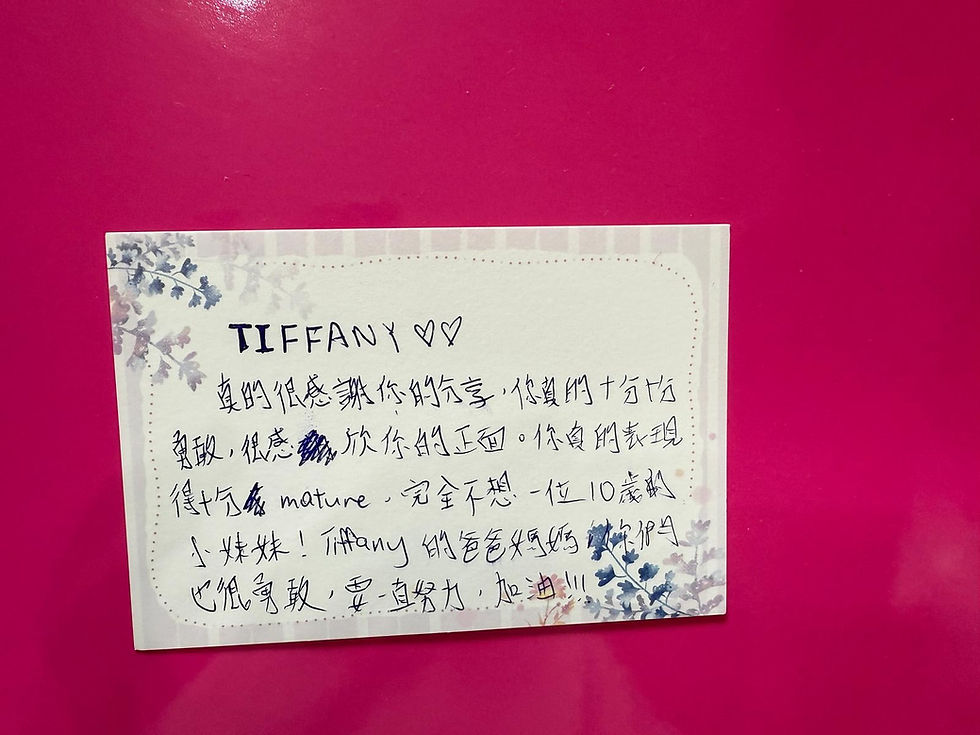 TIFFANY ♡♡
真的很感謝你的分享，你真的十分十分
勇敢，很感欣你的正面。你真的表現
得十分 mature，完全不想一位10歲的
小妹妹！Tiffany 的爸爸媽媽，你們
也很勇敢，要一直努力，加油!!!